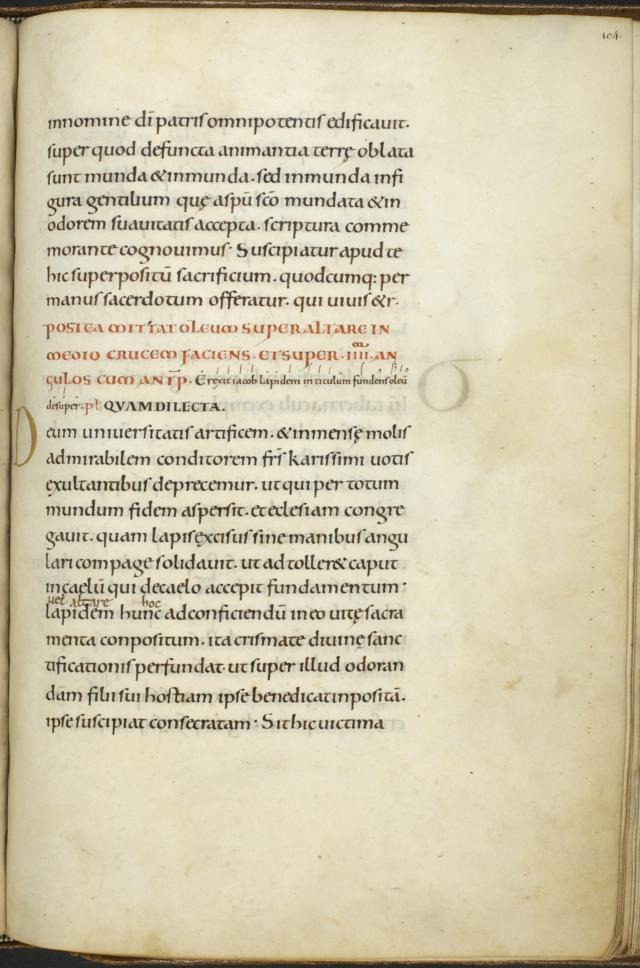 104
innomine dī patris omnipotentis edificauit.
super quod defuncta animantia terrę oblata
sunt munda & inmunda. sed inmunda infi
gura gentilium quę aspū sc̄o mundata & in
odorem suauitatis accepta. scriptura comme
morante cognouimus· Suscipiatur apud te
hic superpositū sacrificium. quodcumq: per
manus sacerdotum offeratur. qui uiuis & r.
POSTEA MITTAT OLEUM SUPER ALTARE IN
MEDIO CRUCEM FACIENS. ET SUPER· IIII· AN
GULOS CUM ANT̄P. Erexit iacob lapidem in titulum fundens oleū
desuper. pł QUAM DILECTA.
Deum uniuersitatis artificem. & inmensę molis
admirabilem conditorem frs̄ karissimi uotis
exultantibus deprecemur. ut qui per totum
mundum fidem aspersit. et eclesiam congre
gauit. quam lapis excisus sine manibus angu
lari compage solidauit. ut ad toller& caput
in caelū qui decaelo accepit fundamentum·
uel altare hoc
lapidem hunc ad conficiendū in eo uitę sacra
menta conpositum. ita crismate diuinę sanc
tificationis perfundat. ut super illud odoran
dam filii sui hostiam ipse benedicat inpositā.
ipse suscipiat consecratam· Sit hic uictima